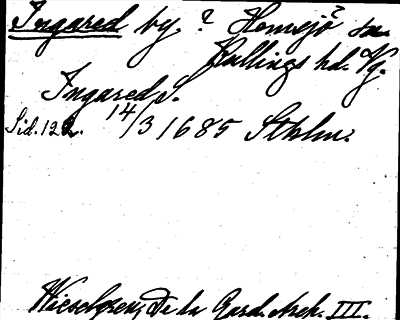 Ingared by. ? Hemsjö? sn.
Kullings hd. Vg.
Ingared s.
Sid. 122. 14/3 1685 Sthlm.
Wieselgren, De la Gard. Ark. III.